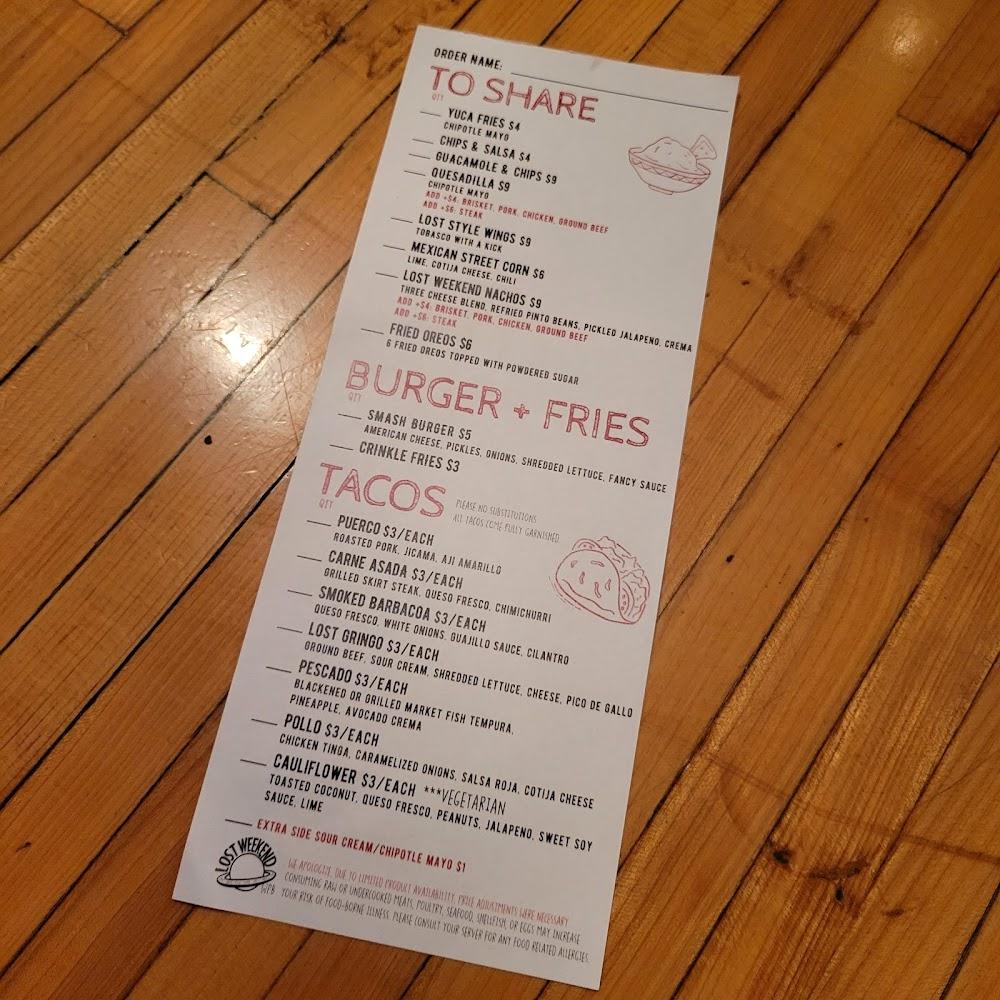 ORDER NAME:
TO SHARE
QTY
YUCA FRIES $4
CHIPOTLE MAYO
CHIPS & SALSA $4
GUACAMOLE & CHIPS $9
QUESADILLA $9
CHIPOTLE MAYO
ADD +$4: BRISKET, PORK, CHICKEN, GROUND BEEF
ADD +$6: STEAK
LOST STYLE WINGS $9
TOBASCO WITH A KICK
MEXICAN STREET CORN $6
LIME, COTIJA CHEESE, CHILI
LOST WEEKEND NACHOS $9
THREE CHEESE BLEND, REFRIED PINTO BEANS, PICKLED JALAPENO, CREMA
ADD +$4: BRISKET, PORK, CHICKEN, GROUND BEEF
ADD +$6: STEAK
FRIED OREOS $6
6 FRIED OREOS TOPPED WITH POWDERED SUGAR
BURGER + FRIES
QTY
SMASH BURGER $5
AMERICAN CHEESE, PICKLES, ONIONS, SHREDDED LETTUCE, FANCY SAUCE
CRINKLE FRIES $3
TACOS
QTY
PLEASE NO SUBSTITUTIONS
ALL TACOS COME FULLY GARNISHED
PUERCO $3/EACH
ROASTED PORK, JICAMA, AJI AMARILLO
CARNE ASADA $3/EACH
GRILLED SKIRT STEAK, QUESO FRESCO, CHIMICHURRI
SMOKED BARBACOA $3/EACH
QUESO FRESCO, WHITE ONIONS, GUAJILLO SAUCE, CILANTRO
LOST GRINGO $3/EACH
GROUND BEEF, SOUR CREAM, SHREDDED LETTUCE, CHEESE, PICO DE GALLO
PESCADO $3/EACH
BLACKENED OR GRILLED MARKET FISH TEMPURA,
PINEAPPLE, AVOCADO CREMA
POLLO $3/EACH
CHICKEN TINGA, CARAMELIZED ONIONS, SALSA ROJA, COTIJA CHEESE
CAULIFLOWER $3/EACH ***VEGETARIAN
TOASTED COCONUT, QUESO FRESCO, PEANUTS, JALAPENO, SWEET SOY
SAUCE, LIME
EXTRA SIDE SOUR CREAM/CHIPOTLE MAYO $1
LOST WEEKEND
WPB
WE APOLOGIZE, DUE TO LIMITED PRODUCT AVAILABILITY, PRICE ADJUSTMENTS WERE NECESSARY
CONSUMING RAW OR UNDERCOOKED MEATS, POULTRY, SEAFOOD, SHELLFISH, OR EGGS MAY INCREASE
YOUR RISK OF FOOD-BORNE ILLNESS. PLEASE CONSULT YOUR SERVER FOR ANY FOOD RELATED ALLERGIES.